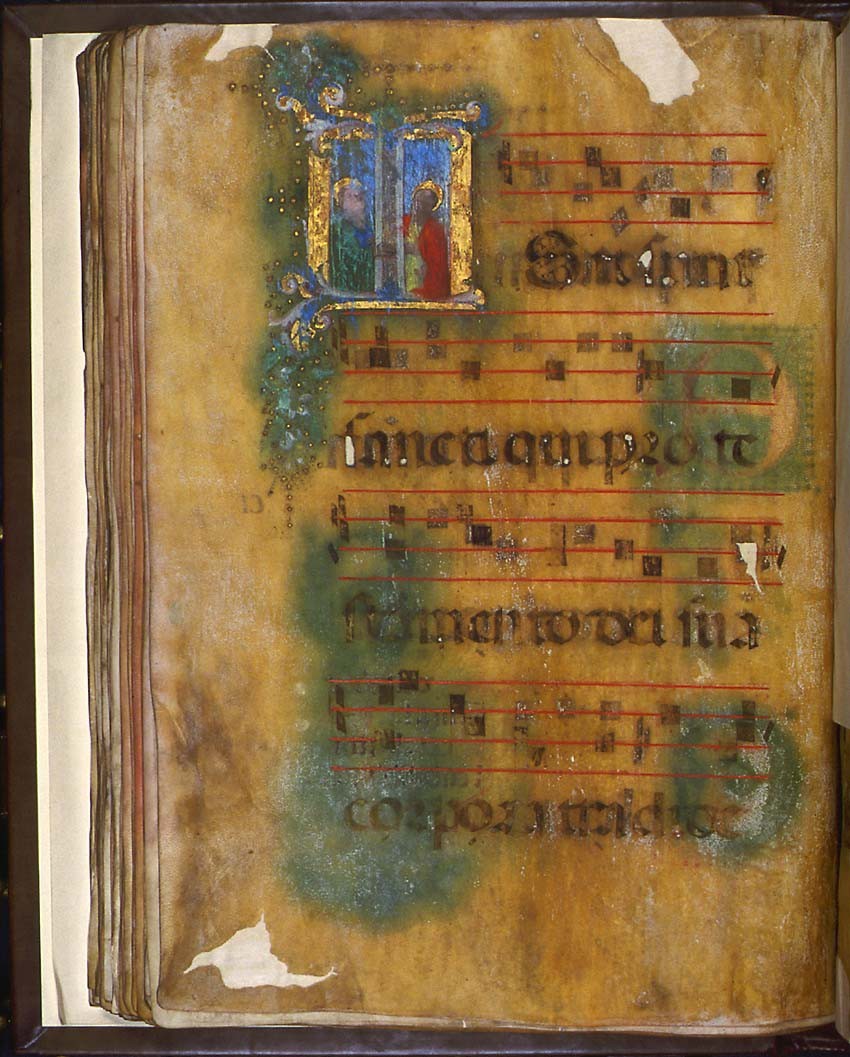 ISti sunt
sancti qui pro te
stamento dei sua
corpora tradide